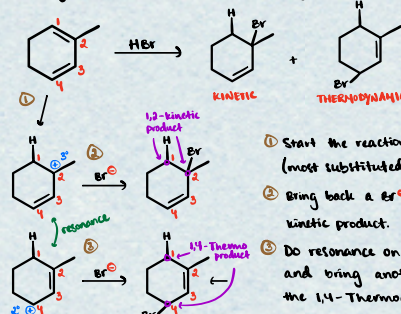 1
2
3
4
HBr
H
Br
KINETIC
+
H
Br
THERMODYNAMIC
1
H
1
3°
2
3
4
2
Br⊖
1,2-kinetic
product
H
Br
1
2
3
4
resonance
H
1
2
3
4
2°
3
Br⊖
1,4-Thermo
product
H
1
2
3
4
① Start the reaction
(most substituted
② Bring back a Br
kinetic product.
③ Do resonance on
and bring
the 1,4-Thermo